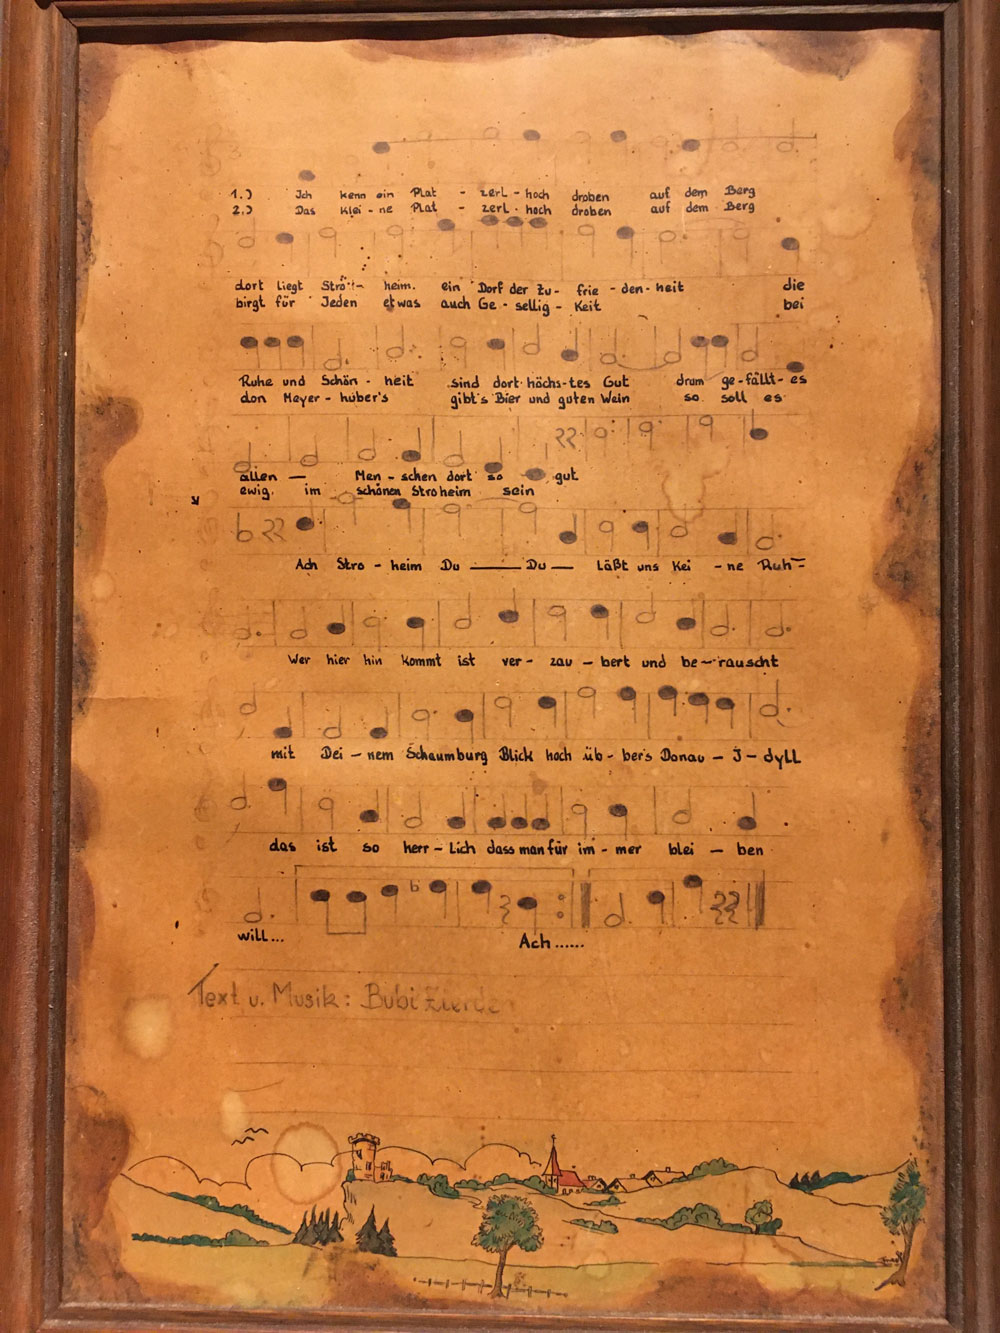 1.) Ich kenn ein Plat - zerl - hoch droben auf dem Berg
2.) Das Klei - ne Plat - zerl - hoch droben auf dem Berg
dort liegt Strö - heim. ein Dorf der Zu - frie - den - heit die
birgt für Jeden etwas auch Ge - sellig - Keit bei
Ruhe und Schön - heit sind dort höchs - tes Gut drum ge - fällt - es
don Mayer - huber's gibt's Bier und guten Wein so soll es
allen — Men - schen dort so gut
ewig. im schönen Stroheim sein
Ach Stro - heim Du — Du — Läßt uns Kei - ne Ruh -
Wer hier hin kommt ist ver - zau - bert und be - rauscht
mit Dei - nem Schaumburg Blick hoch üb - ber's Donau - I - dyll
das ist so herr - Lich dass man für im - mer blei - ben
will... Ach......
Text u. Musik: Bubi